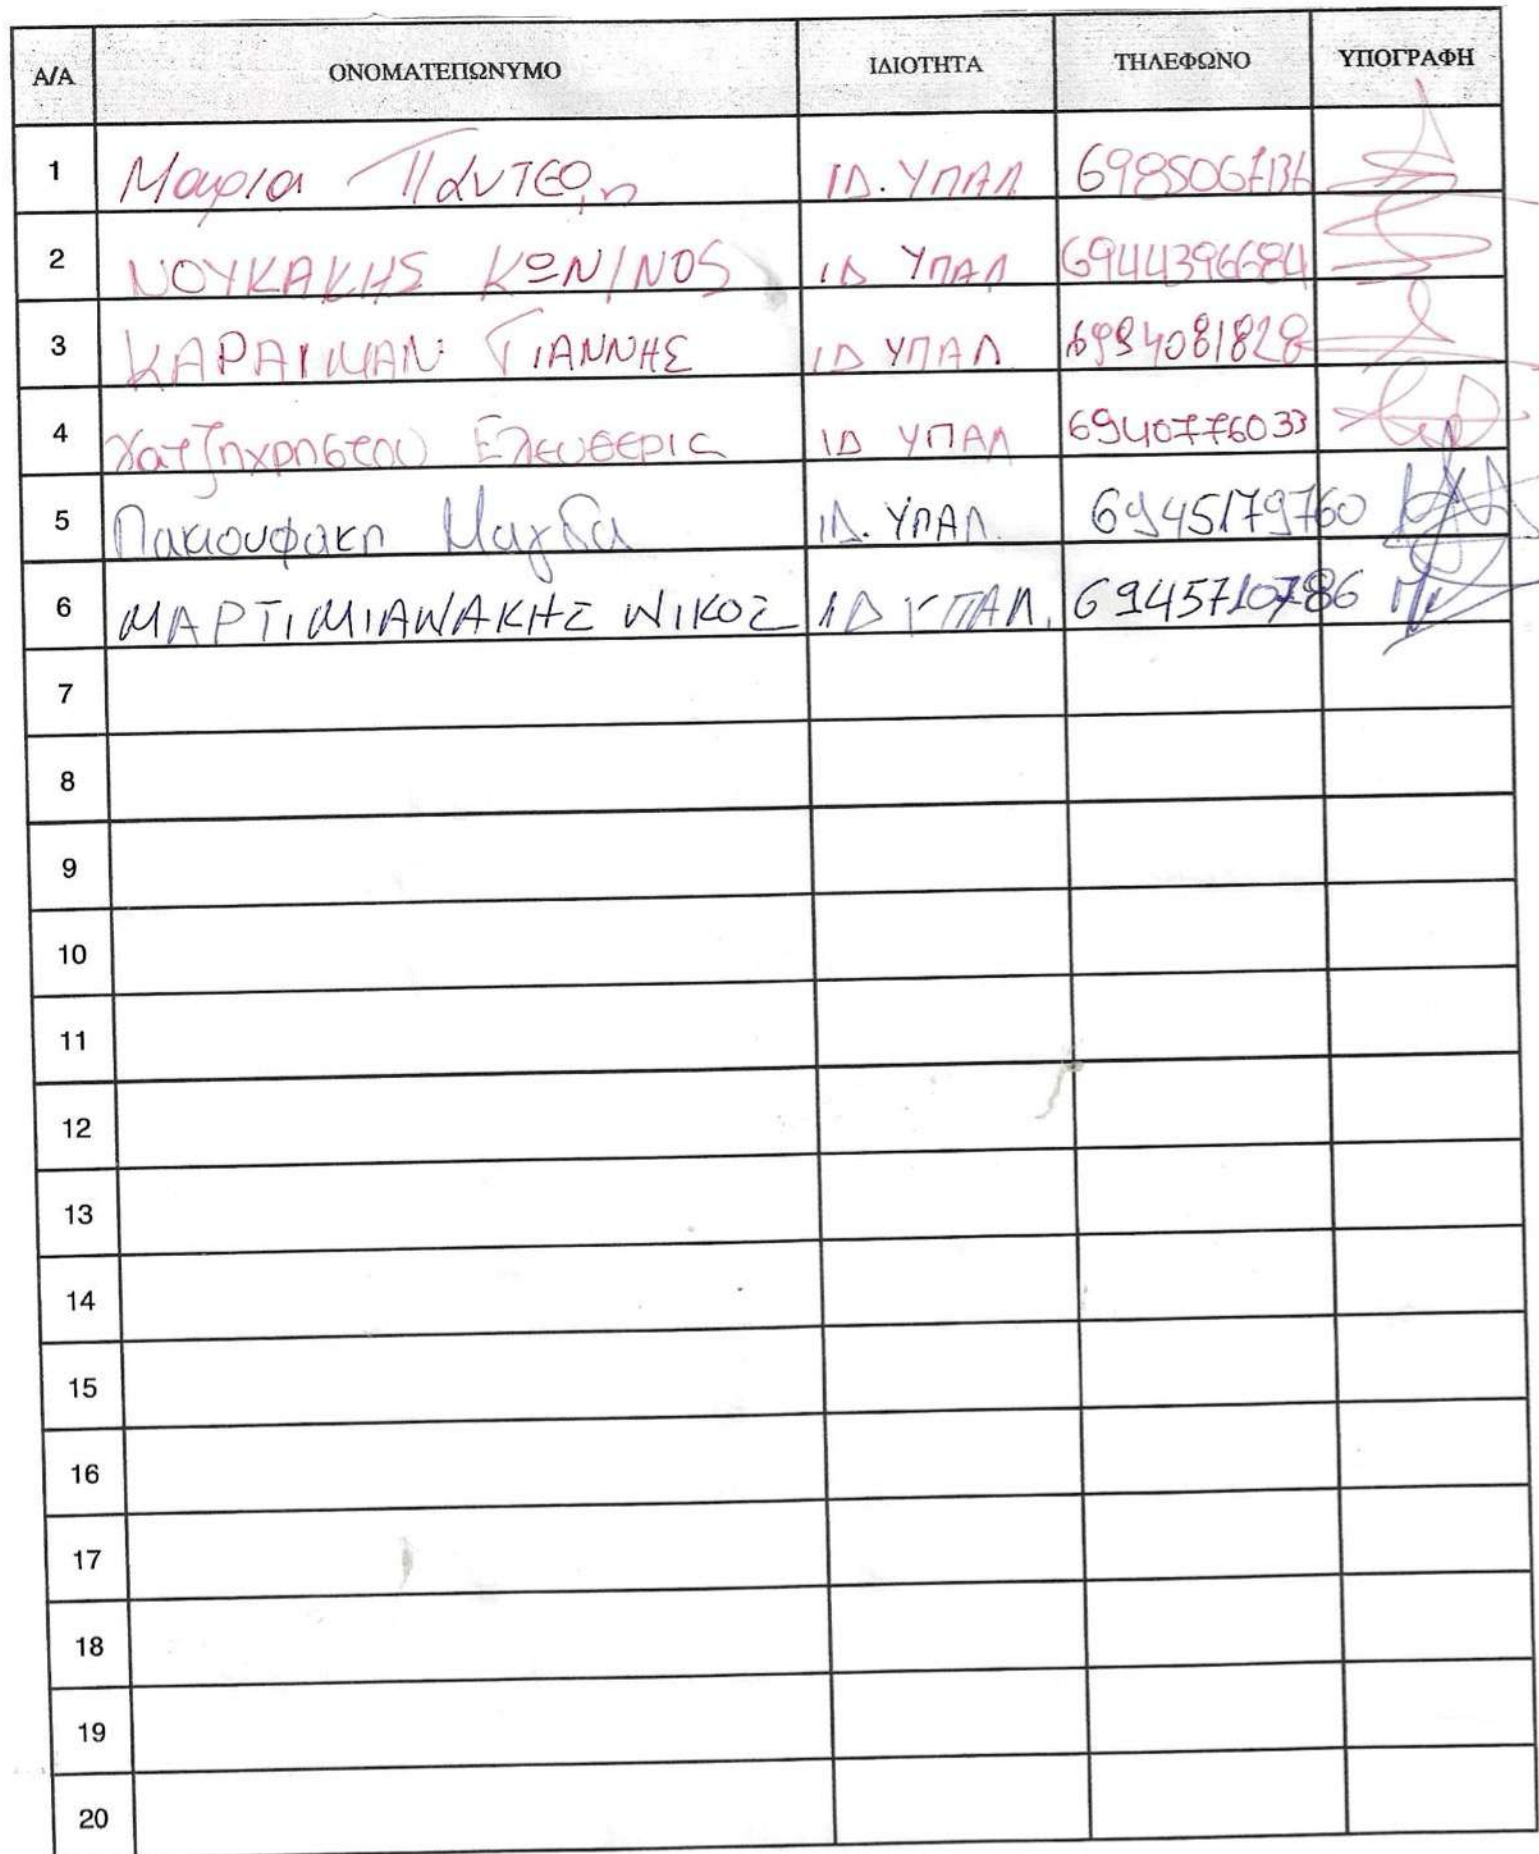 Α/Α ΟΝΟΜΑΤΕΠΩΝΥΜΟ ΙΔΙΟΤΗΤΑ ΤΗΛΕΦΩΝΟ ΥΠΟΓΡΑΦΗ
1 Μαρια ΙΔ. ΥΠΑΛ
2 ΝΟΥΚΑΚΗΣ ΚΩΝ/ΝΟΣ ΙΔ ΥΠΑΛ 6944396684
3 ΓΙΑΝΝΗΣ ΙΔ ΥΠΑΛ 6984081828
4 Χατζηχρηστου ΙΔ ΥΠΑΛ 6940776033
5 Πακιουφακη Μαγδα ΙΔ. ΥΠΑΛ. 6945179760
6 ΜΑΡΤΙΜΙΑΝΑΚΗΣ ΝΙΚΟΣ ΙΔ ΥΠΑΛ. 6945710786
7
8
9
10
11
12
13
14
15
16
17
18
19
20